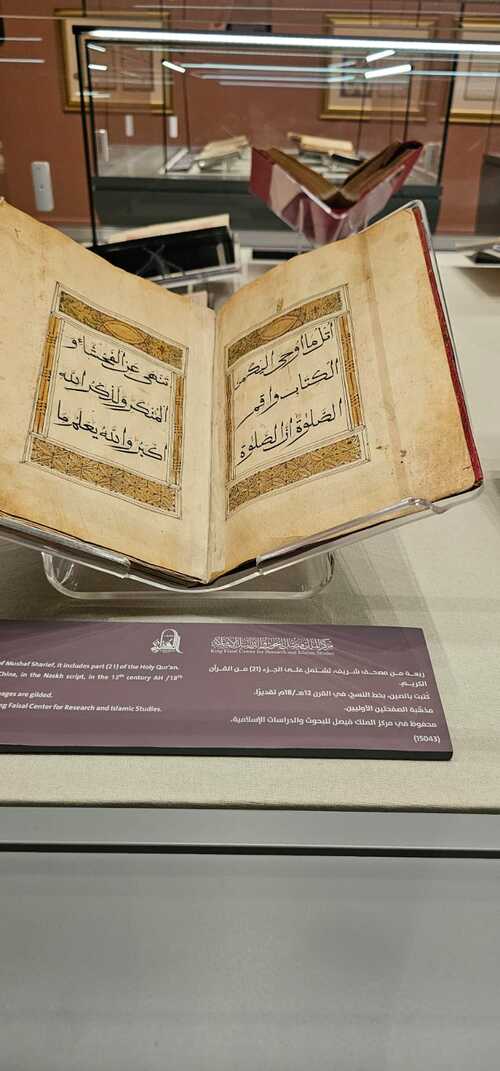 اتل ما اوحي اليك من
الكتاب واقم
الصلوة ان الصلوة
تنهى عن الفحشاء و
المنكر ولذكر الله
اكبر والله يعلم ما
مركز الملك فيصل للبحوث والدراسات الإسلامية
King Faisal Center for Research and Islamic Studies
ربعة من مصحف شريف، تشتمل على الجزء (21) من القرآن
الكريم.
كُتبت بالصين، بخط النسخ، في القرن 12هـ/18م تقديرًا.
مذهّبة الصفحتين الأوليين.
محفوظ في مركز الملك فيصل للبحوث والدراسات الإسلامية.
(15043)
of Mushaf Sharief, it includes part (21) of the Holy Qur'an.
China, in the Naskh script, in the 12th century AH /18th
pages are gilded.
ng Faisal Center for Research and Islamic Studies.